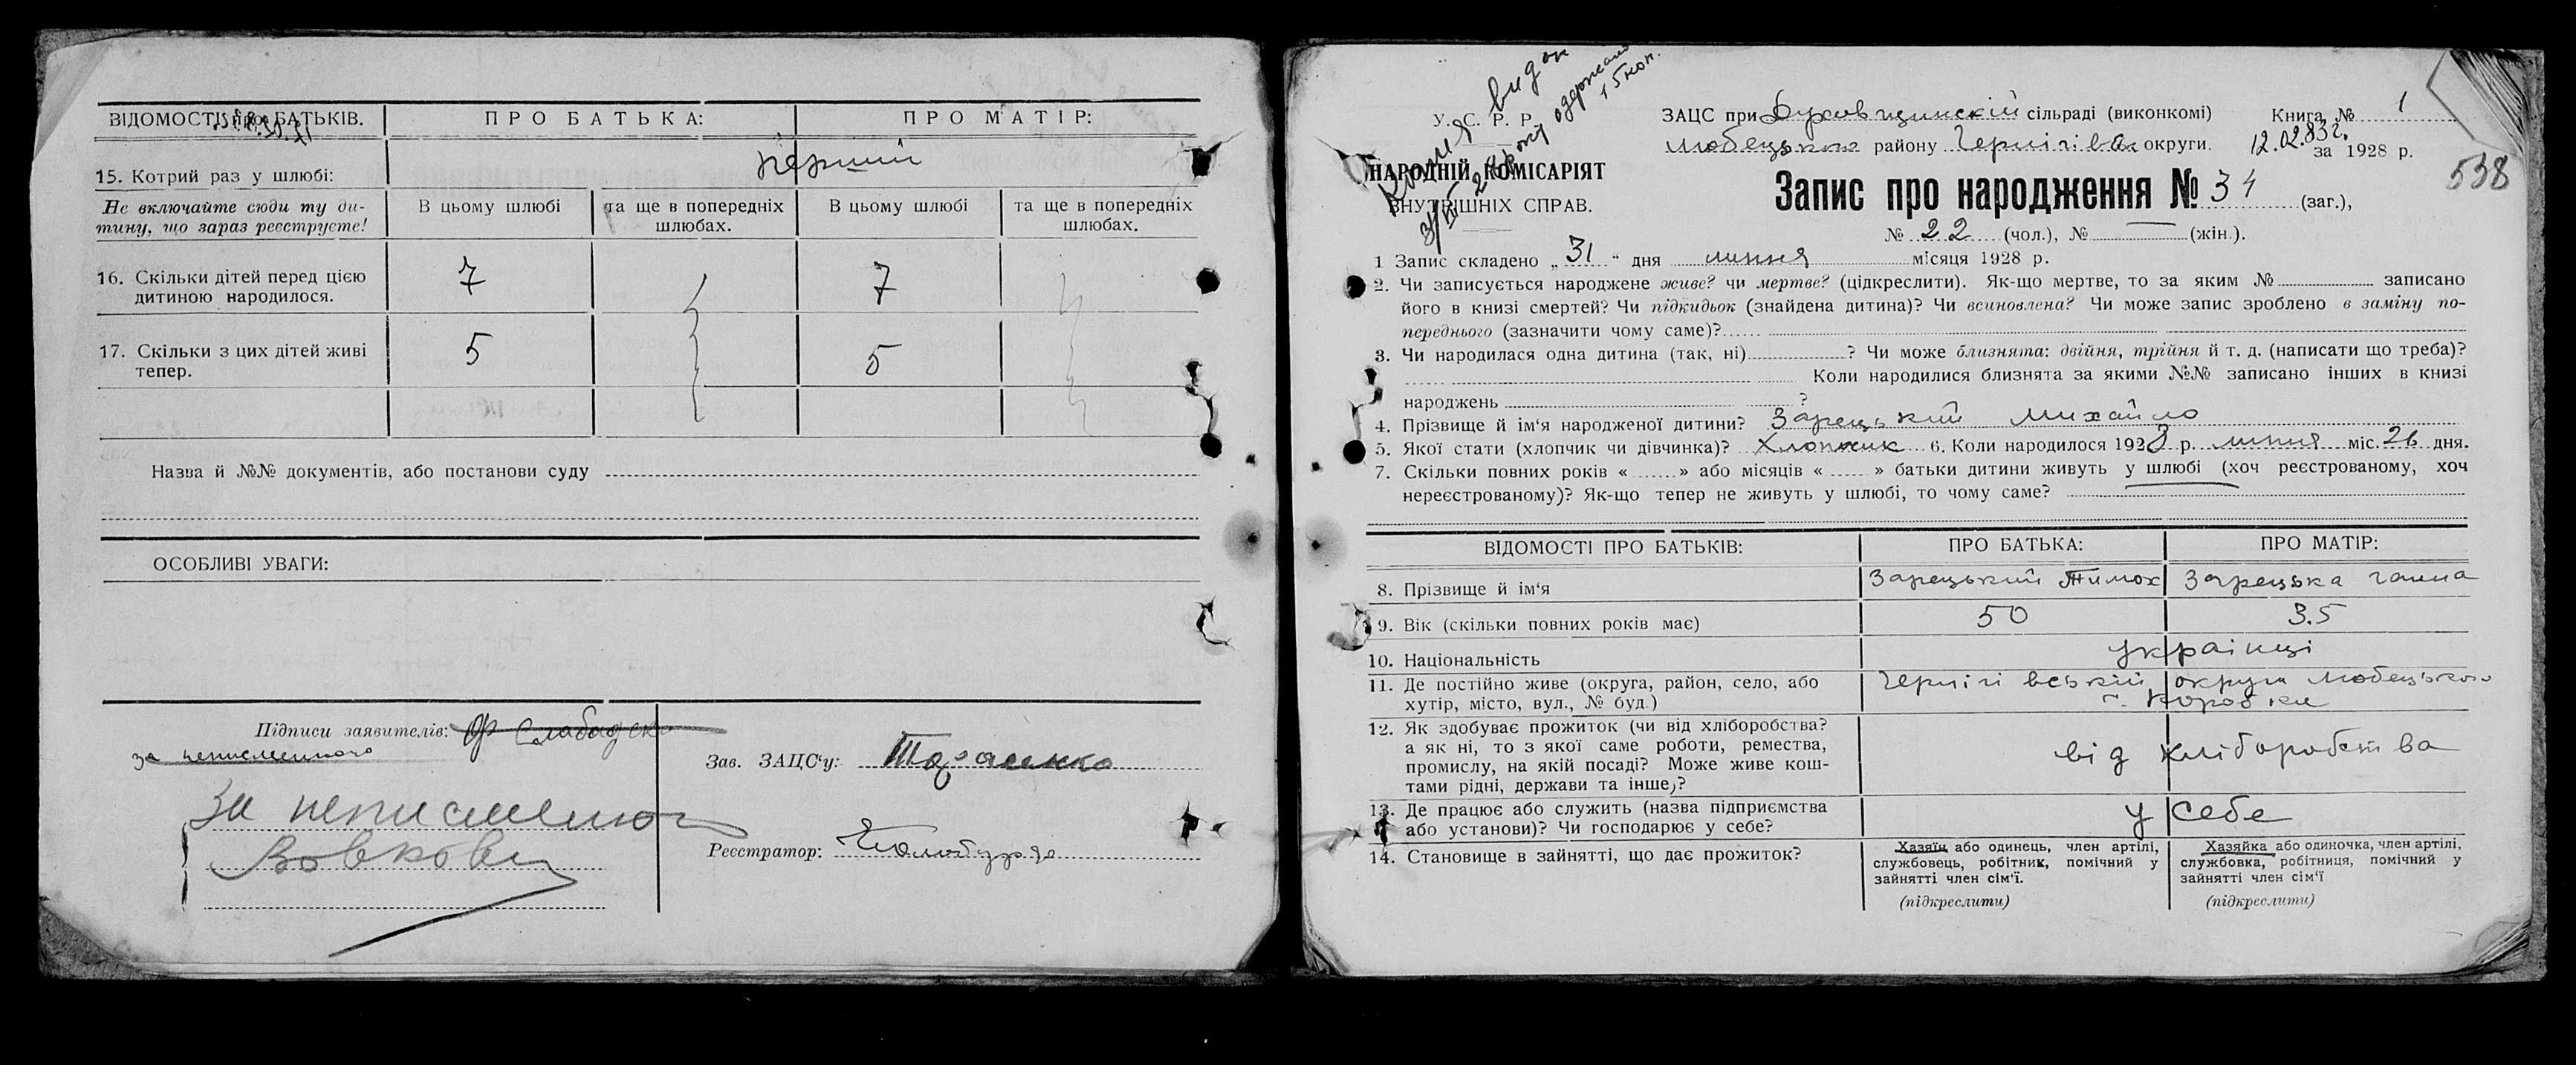 ВІДОМОСТІ ПРО БАТЬКІВ.
ПРО БАТЬКА:
ПРО МАТІР:
15. Котрий раз у шлюбі:
перший
Не включайте сюди ту ди-
тину, що зараз реєструєте!
В цьому шлюбі
та ще в попередніх
шлюбах.
В цьому шлюбі
та ще в попередніх
шлюбах.
16. Скільки дітей перед цією
дитиною народилося.
7
7
17. Скільки з цих дітей живі
тепер.
5
5
Назва й №№ документів, або постанови суду
ОСОБЛИВІ УВАГИ:
Підписи заявителів:
за неписьменного
За неписьменного
Зав. ЗАЦС‘у: Тарасенко
Реєстратор:
Копія видан
одержано
15 коп.
У. С. Р. Р.
НАРОДНІЙ КОМІСАРІЯТ
ВНУТРІШНІХ СПРАВ.
ЗАЦС при сільраді (виконкомі)
Любецького району Чернігівськ округи.
Книга № 1
12.02.83г.
за 1928 р.
538
Запис про народження № 34 (заг.),
№ 22 (чол.), № — (жін.).
1 Запис складено „31“ дня липня місяця 1928 р.
2. Чи записується народжене живе? чи мертве? (підкреслити). Як-що мертве, то за яким № записано
його в книзі смертей? Чи підкидьок (знайдена дитина)? Чи всиновлена? Чи може запис зроблено в заміну по-
переднього (зазначити чому саме)?
3. Чи народилася одна дитина (так, ні) ? Чи може близнята: двійня, трійня й т. д. (написати що треба)?
Коли народилися близнята за якими №№ записано інших в книзі
народжень ?
4. Прізвище й ім‘я народженої дитини? Зарецький Михайло
5. Якої стати (хлопчик чи дівчинка)? Хлопчик 6. Коли народилося 1928 р. липня міс. 26 дня.
7. Скільки повних років « » або місяців « » батьки дитини живуть у шлюбі (хоч реєстрованому, хоч
нереєстрованому)? Як-що тепер не живуть у шлюбі, то чому саме?
ВІДОМОСТІ ПРО БАТЬКІВ:
ПРО БАТЬКА:
ПРО МАТІР:
8. Прізвище й ім‘я
Зарецький Тимох
Зарецька Ганна
9. Вік (скільки повних років має)
50
35
10. Національність
українці
11. Де постійно живе (округа, район, село, або
хутір, місто, вул., № буд.)
Чернігівській округи Любецького
с. Коробки
12. Як здобуває прожиток (чи від хліборобства?
а як ні, то з якої саме роботи, ремества,
промислу, на якій посаді? Може живе кош-
тами рідні, держави та інше)?
від хліборобства
13. Де працює або служить (назва підприємства
або установи)? Чи господарює у себе?
у себе
14. Становище в зайнятті, що дає прожиток?
Хазяїн або одинець, член артілі,
службовець, робітник, помічний у
зайнятті член сім‘ї.
(підкреслити)
Хазяйка або одиночка, член артілі,
службовка, робітниця, помічний у
зайнятті член сім‘ї
(підкреслити)